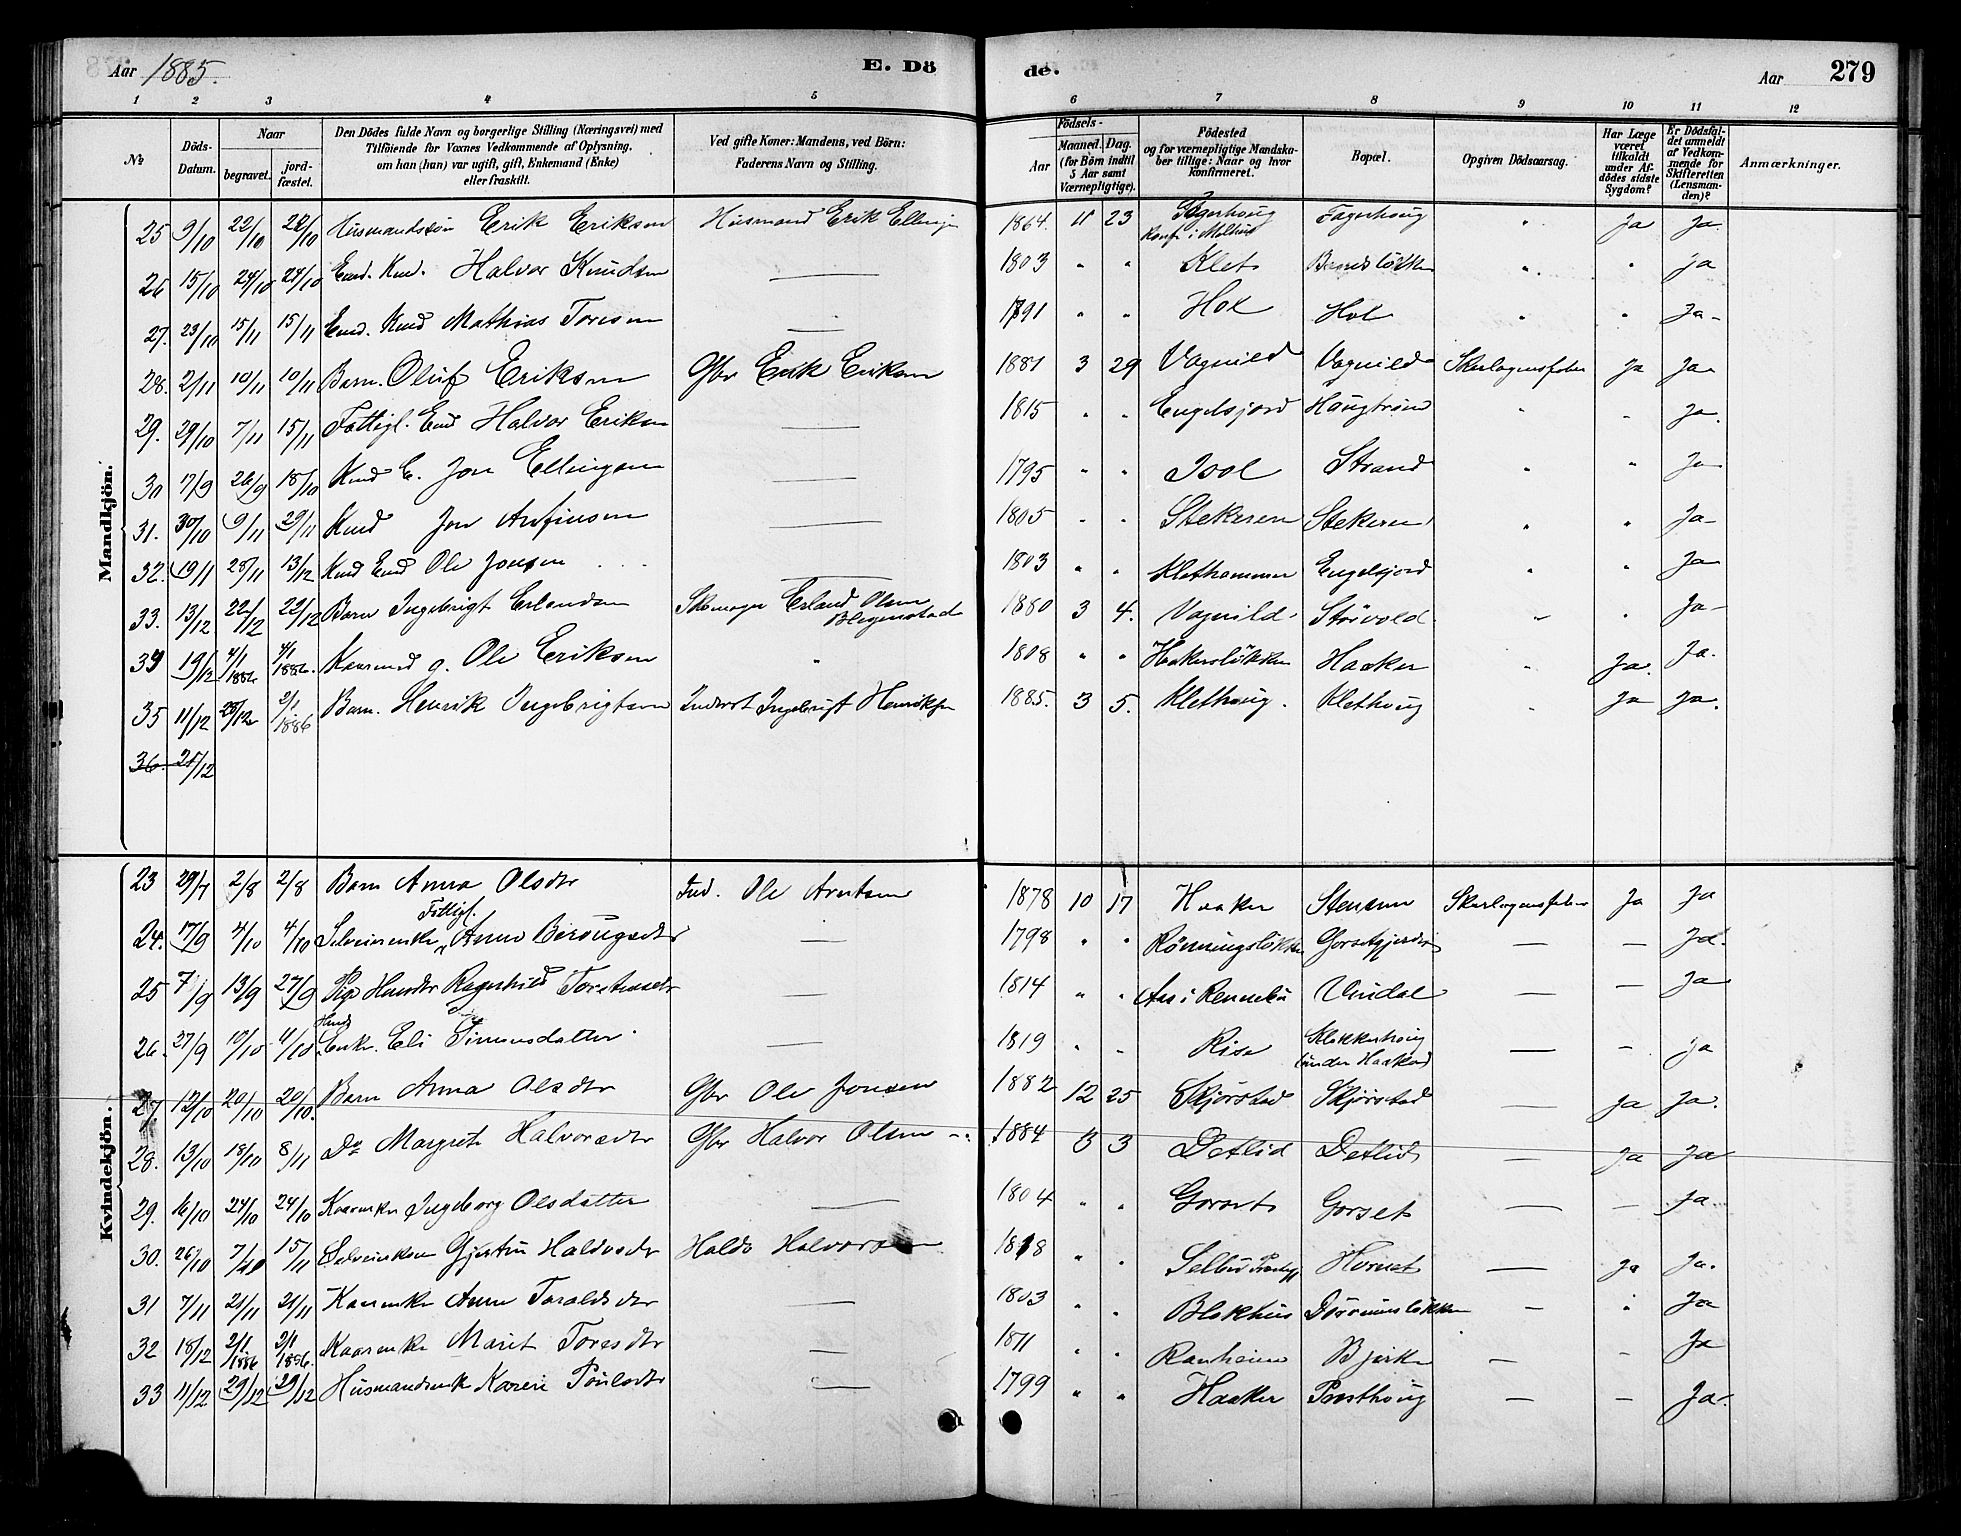 Aar 1885. E. Dö de. Aar 279
1 2 3 4 5 6 7 8 9 10 11 12
№ Döds-Datum. Naar begravet. jord-fæstet. Den Dödes fulde Navn og borgerlige Stilling (Næringsvei) med Tilföiende for Voxnes Vedkommende af Oplysning, om han (hun) var ugift, gift, Enkemand (Enke) eller fraskilt. Ved gifte Koner: Mandens, ved Börn: Faderens Navn og Stilling. Födsels- Aar Maaned. Dag. (for Börn indtil 5 Aar samt Værnepligtige). Födested og for værnepligtige Mandska-ber tillige: Naar og hvor konfirmeret. Bopæl. Opgiven Dödsaarsag. Har Læge været tilkaldt under Af-dödes sidste Sygdom? Er Dödsfal-det anmeldt af Vedkom-mende for Skifteretten (Lensman-den)? Anmærkninger.
Mandkjön.
25 9/10 22/10 22/10 Husmandssön Erik Eriksen Husmand Erik Ellings 1864. 11 23 Fagerhoug Konf. i Melhus Fagerhoug " Ja Ja
26 15/10 24/10 24/10 Emd. Kmd. Halvor Knudsen — 1803 " " Klet Brandsløkken " " Ja
27. 23/10 15/11 15/11 Emd. Kmd Mathias Toresen — 1791 " " Hol Hol " " Ja
28. 2/11 10/11 10/11 Barn. Oluf Eriksen Gbr Erik Eriksen 1881 3 29 Vognild Vognild Skarlagensfeber Ja Ja
29. 29/10 7/11 15/11 Fattigl. Emd Halvor Eriksen — 1815 " " Engelsjord Haugtrøen " " Ja.
30 17/9 26/9 18/10 Kmd E. Jon Ellingsen — 1795 " " Isol Strand " " Ja
31. 30/10 9/11 29/11 Kmd Jon Arnfinsen — 1805 " " Stekeren Stekeren " " Ja
32. 19/11 28/11 13/12 Kmd Emd Ole Jonsen — 1803 " " Klethammer Engelsjord " " Ja
33. 13/12 22/12 22/12 Barn Ingebrigt Erlandsen Skomager Erland Olsen Blegenstad 1880 3 4. Vognild Stövold " " Ja
34 19/12 4/1 1886 4/1 1886. Kaarmd g. Ole Eriksen " 1808 " " Haakersløkken Haaker " Ja. Ja.
35 11/12 23/12 2/1 1886 Barn. Henrik Ingebrigtsen Inderst Ingebrigt Henriksen 1885. 3 5. Klethoug. Klethoug " Ja Ja.
36. 25/12
Kvindekjön.
23 29/7 2/8 2/8 Barn Anna Olsdtr Ind. Ole Arntsen 1878 10 17 Haaker Stensen Skarlagensfeber Ja Ja
24. 17/9 4/10 4/10 Selveierenke Fattigl. Anne Berougsdtr — 1798 " " Rönningsløkken Gorsetgjerdet — — Ja.
25 7/9 13/9 27/9 Pige Husdtr Ragnhild Torstensdtr — 1814 " " Aas i Rennebu Vindal — — Ja
26. 27/9 10/10 11/10 Husm Enke. Eli Simensdatter 1819 " " Rise Klokkerhoug under Haaker — — Ja
27. 12/10 20/10 20/10. Barn Anna Olsdtr Gbr Ole Jonsen 1882 12 25 Skjørstad Skjørstad Ja Ja.
28. 13/10 18/10 8/11 Do Margrete Halvorsdtr Gbr Halvor Olsen 1884 3 Detlid Detlid — Ja Ja
29. 16/10 24/10 24/10 Kaarenke Ingeborg Olsdatter — 1804 " " Gorset Gorset — — Ja
30. 26/10 7/11 15/11 Selveierkone Gjertru Haldosdtr Haldo Halvorsen 1818 " " Selbu Prestgj Hornet — Ja Ja.
31 7/11 21/11 21/11 Kaarenke Anne Toraldsdtr — 1803 " " Blokhus Dörrumsløkken — " Ja
32 18/12 2/1 1886 2/1 1886. Kaarenke Marit Toresdtr — 1811 " " Ranheim Bjerke — — Ja
33 11/12 29/12 29/12 Husmandsenk Karen Poulsdtr — 1799 " " Haaker Presthoug — — Ja.